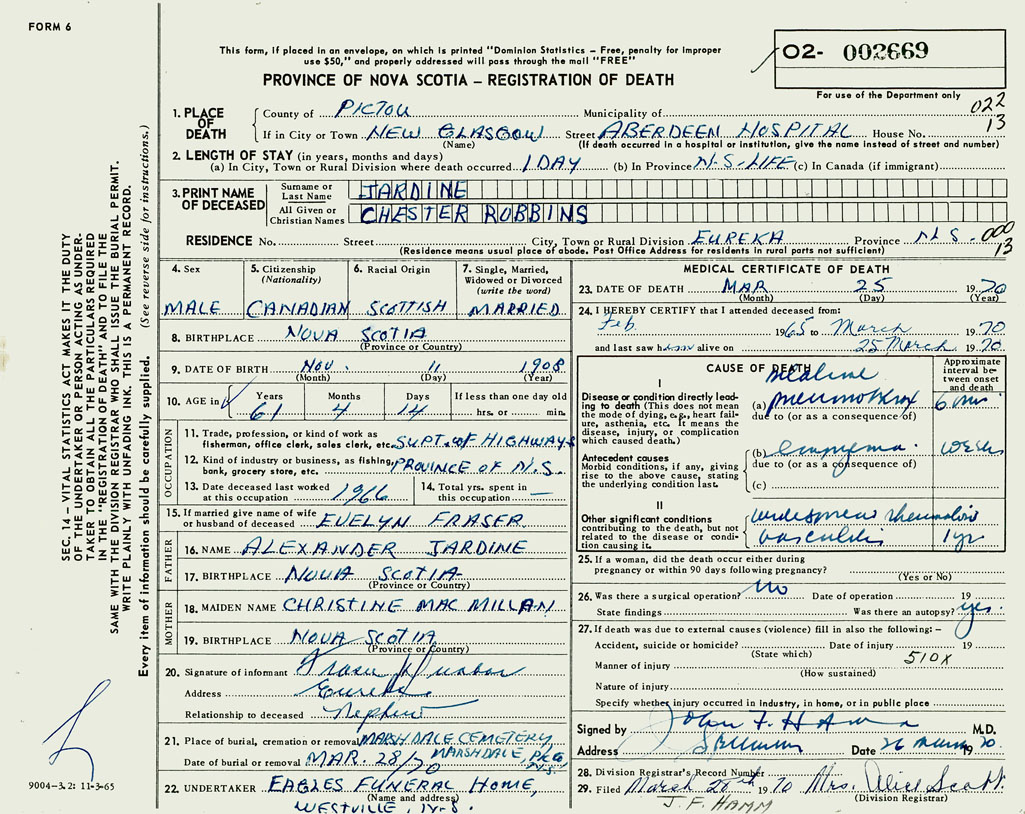 FORM 6
This form, if placed in an envelope, on which is printed "Dominion Statistics – Free, penalty for improper
use $50," and properly addressed will pass through the mail "FREE"
O2- 002669
PROVINCE OF NOVA SCOTIA – REGISTRATION OF DEATH
For use of the Department only
022
13
1. PLACE OF DEATH
County of PICTOU Municipality of
If in City or Town NEW GLASGOW Street ABERDEEN HOSPITAL House No.
(Name) (If death occurred in a hospital or institution, give the name instead of street and number)
2. LENGTH OF STAY (in years, months and days)
(a) In City, Town or Rural Division where death occurred 1 DAY (b) In Province N.S.-LIFE (c) In Canada (if immigrant)
3. PRINT NAME OF DECEASED
Surname or Last Name JARDINE
All Given or Christian Names CHESTER ROBBINS
RESIDENCE No. Street City, Town or Rural Division EUREKA Province N.S. 000
13
(Residence means usual place of abode. Post Office Address for residents in rural parts not sufficient)
4. Sex
MALE
5. Citizenship (Nationality)
CANADIAN
6. Racial Origin
SCOTTISH
7. Single, Married, Widowed or Divorced (write the word)
MARRIED
8. BIRTHPLACE NOVA SCOTIA
(Province or Country)
9. DATE OF BIRTH NOV. 11 1908
(Month) (Day) (Year)
10. AGE in Years Months Days If less than one day old
61 4 14 hrs. or min.
OCCUPATION
11. Trade, profession, or kind of work as
fisherman, office clerk, sales clerk, etc. SUPT. OF HIGHWAYS
12. Kind of industry or business, as fishing,
bank, grocery store, etc. PROVINCE OF N.S.
13. Date deceased last worked
at this occupation 1966
14. Total yrs. spent in
this occupation —
15. If married give name of wife
or husband of deceased EVELYN FRASER
FATHER
16. NAME ALEXANDER JARDINE
17. BIRTHPLACE NOVA SCOTIA
(Province or Country)
MOTHER
18. MAIDEN NAME CHRISTINE MAC MILLAN
19. BIRTHPLACE NOVA SCOTIA
(Province or Country)
20. Signature of informant
Address Eureka
Relationship to deceased Nephew
21. Place of burial, cremation or removal MARSHDALE CEMETERY
MARSHDALE, N.S.
Date of burial or removal MAR. 28/70
22. UNDERTAKER EAGLES FUNERAL HOME,
(Name and address)
WESTVILLE, N.S.
MEDICAL CERTIFICATE OF DEATH
23. DATE OF DEATH MAR 25 1970
(Month) (Day) (Year)
24. I HEREBY CERTIFY that I attended deceased from:
Feb 1965 to March 1970
and last saw him alive on 25 March 1970
CAUSE OF DEATH
Approximate interval between onset and death
I
Disease or condition directly leading to death (This does not
mean the mode of dying, e.g., heart failure, asthenia, etc. It means the
disease, injury, or complication
which caused death.)
(a) pneumothorax
due to (or as a consequence of)
Antecedent causes
Morbid conditions, if any, giving
rise to the above cause, stating
the underlying condition last.
(b) Empyema
due to (or as a consequence of)
(c)
II
Other significant conditions
contributing to the death, but not
related to the disease or condition
causing it.
widespread rheumatoid
vasculitis 1 yr
25. If a woman, did the death occur either during
pregnancy or within 90 days following pregnancy?
(Yes or No)
26. Was there a surgical operation? no Date of operation 19
State findings Was there an autopsy? yes.
27. If death was due to external causes (violence) fill in also the following: –
Accident, suicide or homicide? Date of injury 19
(State which) 510X
Manner of injury
(How sustained)
Nature of injury
Specify whether injury occurred in industry, in home, or in public place
Signed by John F. Hamm M.D.
Address Date 26 March 1970
28. Division Registrar's Record Number
29. Filed March 1970 Mrs. Alice Scott
(Division Registrar)
J.F. HAMM
SEC. 14 – VITAL STATISTICS ACT MAKES IT THE DUTY
OF THE UNDERTAKER OR PERSON ACTING AS UNDER-
TAKER TO OBTAIN ALL THE PARTICULARS REQUIRED
IN THE "REGISTRATION OF DEATH" AND TO FILE THE
SAME WITH THE DIVISION REGISTRAR WHO SHALL ISSUE THE BURIAL PERMIT.
WRITE PLAINLY WITH UNFADING INK. THIS IS A PERMANENT RECORD.
Every item of information should be carefully supplied. (See reverse side for instructions.)
9004-3.2: 11-3-65